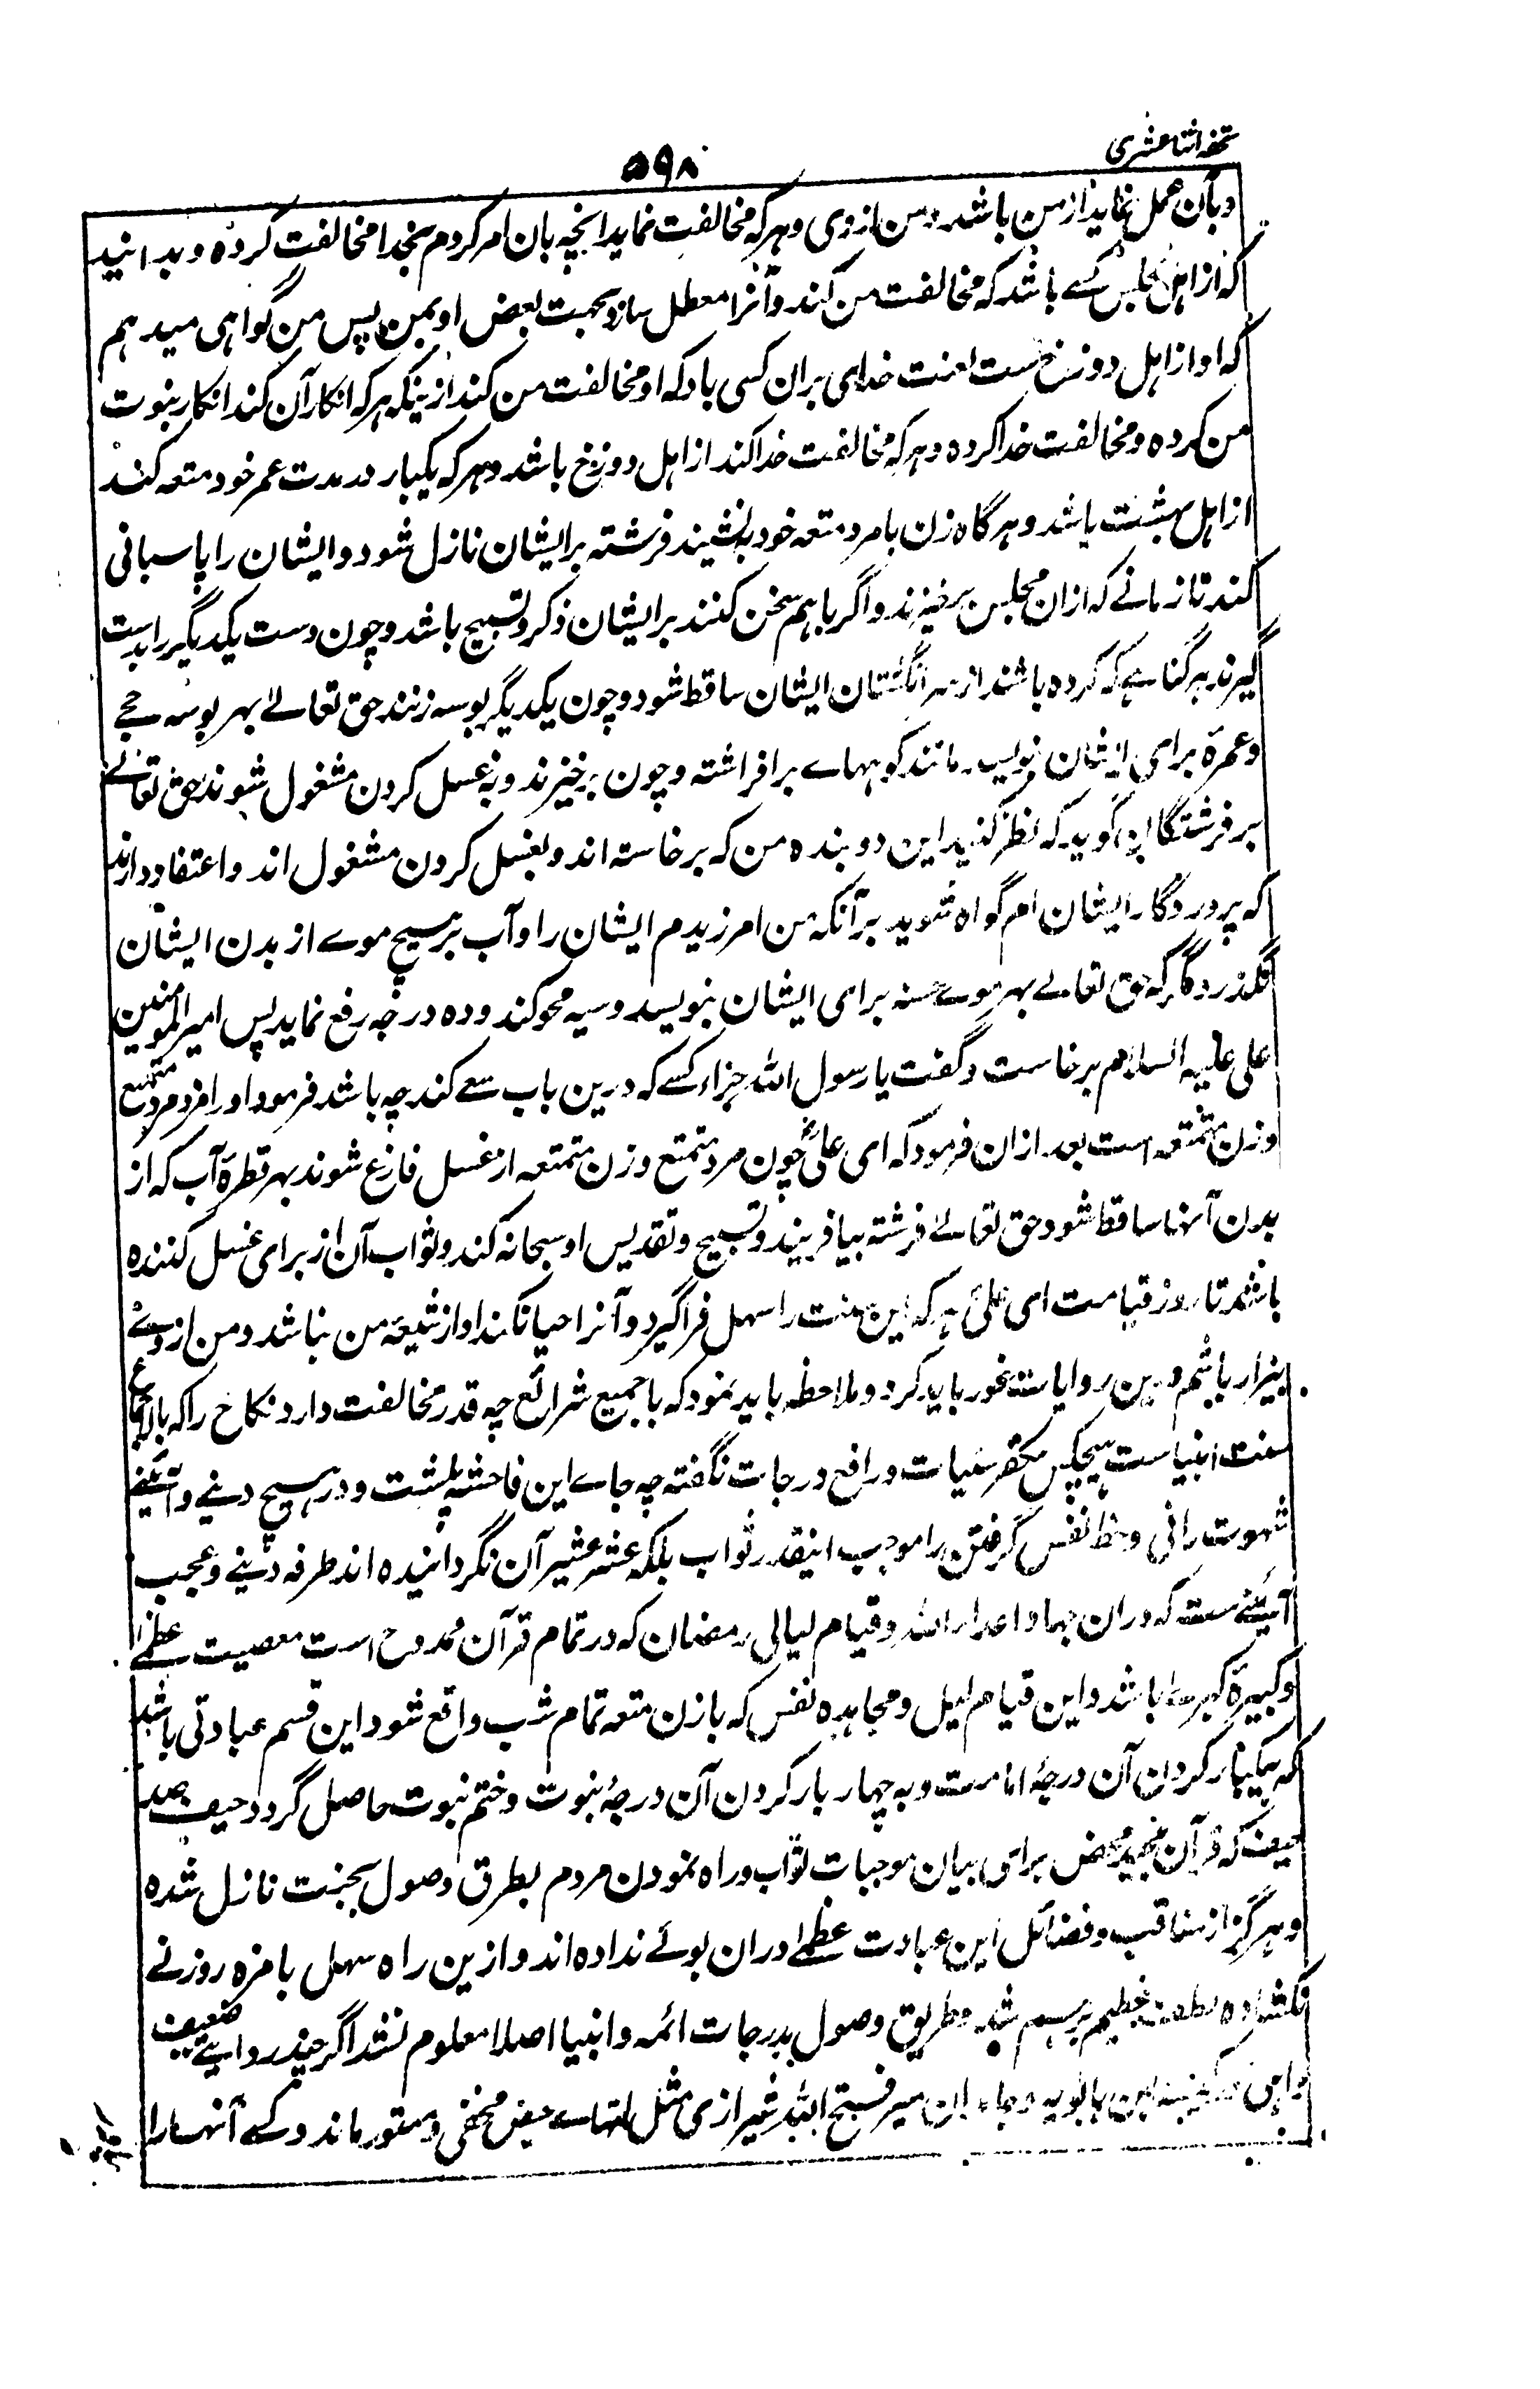 تحفه اثنا عشری
۵۹۸
و بآن عمل نماید از من باشد و من از وی و هر که مخالفت نماید انچه بان امر کردم بخدا مخالفت کرده و بدانید
که از اهل مجلس کسے باشد که مخالفت من کند و آنرا معطل سازد بجهت بغض او بمن پس من گواهی میدهم
که او از اهل دوزخ ست لعنت خدای بران کسی باد که او مخالفت من کند ازینکه هر که انکار آن کند انکار بنوت
من کرده و مخالفت خدا کرده و هر که مخالفت خدا کند از اهل دوزخ باشد و هر که یکبار در مدت عمر خود متعه کند
از اهل بهشت باشد و هرگاه زن با مرد متعه خود بنشیند فرشته بر ایشان نازل شود و ایشان را پاسبانی
کند تا زمانے که ازان مجلس برخیزند و اگر با هم سخن کنند بر ایشان ذکر و تسبیح باشد و چون دست یکدیگر را بدست
گیرند هر گناهے که کرده باشند از سر انگشتان ایشان ساقط شود و چون یکدیگر بوسه زنند حق تعالےٰ بهر بوسه حجے
و عمرهٔ برای ایشان نویسد مانند کوههاے برافراشته و چون برخیزند و به غسل کردن مشغول شوند حق تعالےٰ
بر فرشتگان گوید که نظر کنید این دو بنده من که برخاسته اند و بغسل کردن مشغول اند و اعتقاد دارند
که پروردگار ایشان ام گواه شوید بر آنکه من امرزیدم ایشان را و آب بر هیچ موے از بدن ایشان
نگذرد مگر که حق تعالے بهر موے حسنه برای ایشان بنویسد و سیه محو کند و ده درجه رفع نماید پس امیر المومنین
علی علیه السلام برخاست و گفت یا رسول الله جزاء کسے که درین باب سعے کند چه باشد فرمود او را مزد مرد متمتع
و زن متمتعه است بعد ازان فرمود که ای علی چون مرد متمتع و زن متمتعه از غسل فارغ شوند بهر قطرهٔ آب که از
بدن آنها ساقط شود حق تعالےٰ فرشته بیافریند و تسبیح و تقدیس او سبحانه کند و ثواب آن از برای غسل کننده
باشد تا روز قیامت ای علی هر که این سنت را سهل فراگیرد و آنرا احیا نکند او از شیعهٔ من نباشد و من از وے
بیزار باشم درین روایات بغور باید کرد و ملاحظه باید نمود که با جمیع شرائع چه قدر مخالفت دارد نکاح را که بالاجماع
سنت انبیاست هیچکس مکفر سیئات و رافع درجات نگفته چه جاے این فاحشه پلشت و در هیچ دینے و آئینے
شهوت رانی و حظ نفس گرفتن را موجب اینقدر ثواب بلکه عشر عشیر آن نگردانیده اند طرفه دینے و عجب
آئینے ست که دران جهاد اعداء الله و قیام لیالی رمضان که در تمام قرآن ممدوح است معصیت عظمےٰ
و کبیرهٔ کبرےٰ باشد و این قیام لیل و مجاهده نفس که با زن متعه تمام شب واقع شود این قسم عبادتی باشد
که بیکبار کردن آن درجهٔ امامت و به چهار بار کردن آن درجهٔ بنوت و ختم نبوت حاصل گردد حیف صد
حیف که قرآن مجید محض برای بیان موجبات ثواب و راه نمودن مردم بطرق وصول بجنت نازل شده
و هرگز از مناقب و فضائل این عبادت عظمےٰ دران بوئے نداده اند و ازین راه سهل بامزه روزنے
نگشاده لطف عظیم برهم شد و طریق وصول بدرجات ائمه و انبیا اصلا معلوم نشد اگر چند روایتے ضعیف
میر فتح الله شیرازی مثل مخفی و مستور ماند و کسے آنها را